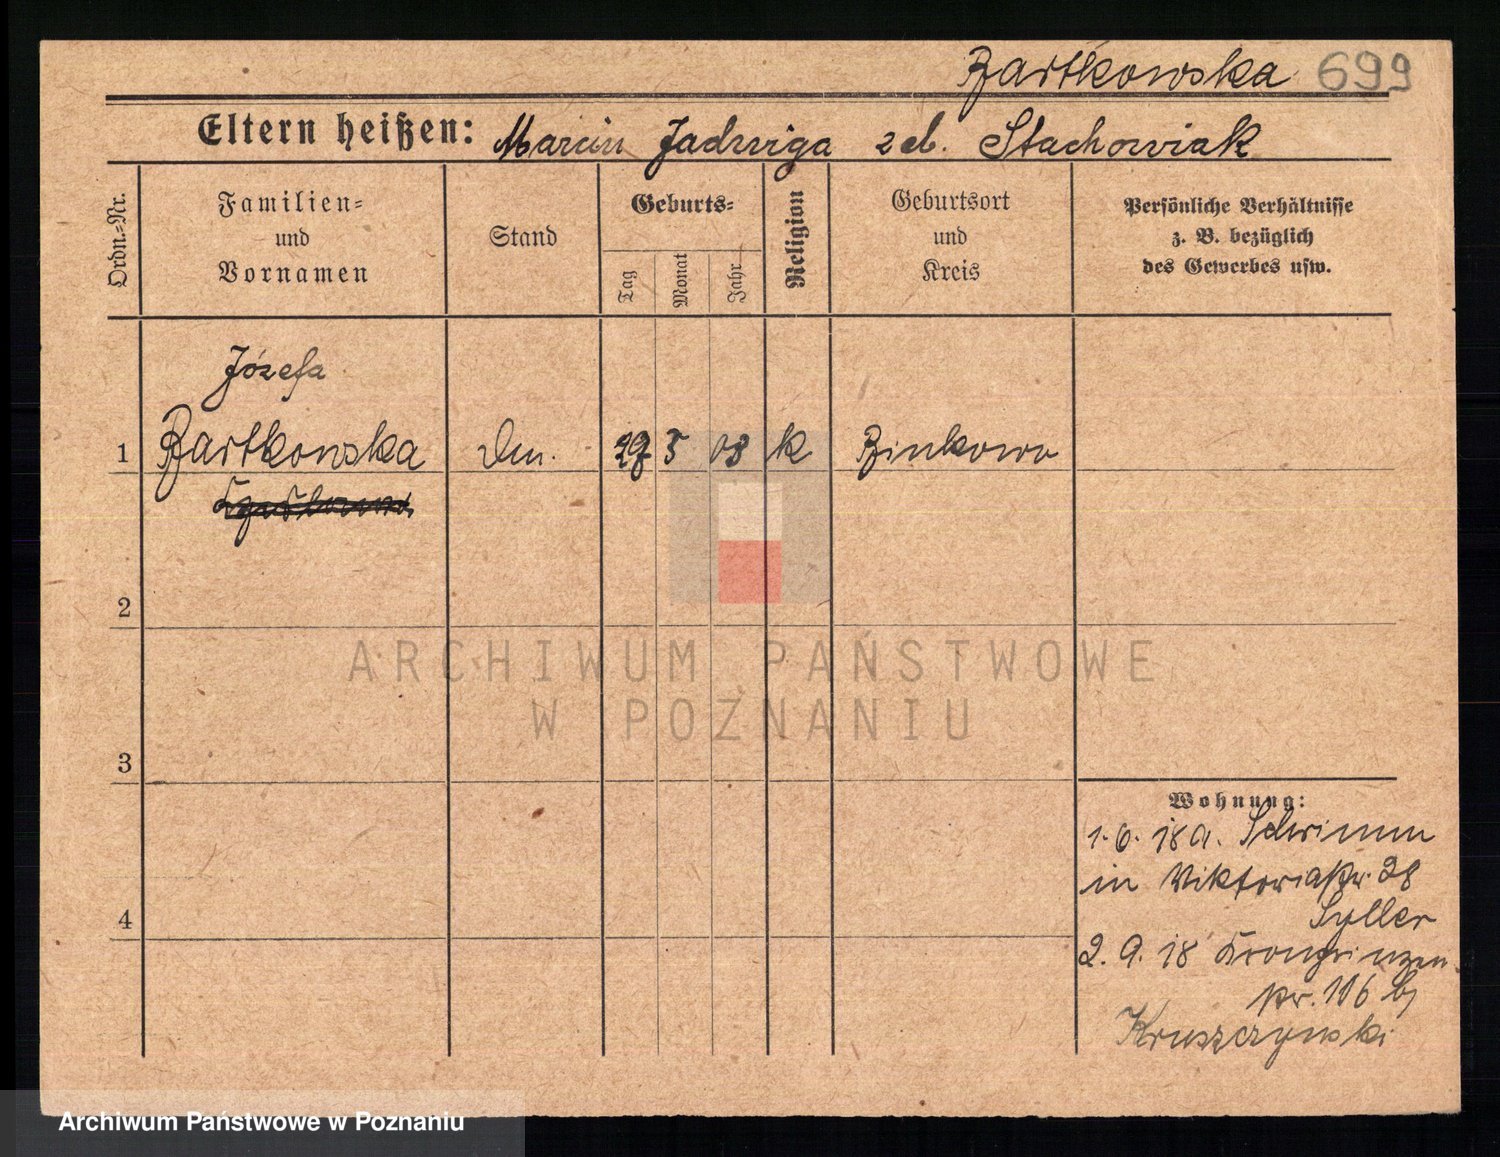 Bartkowska 699
Eltern heißen: Marcin Jadwiga geb. Stachowiak
Ordn.=Nr.
Familien=
und
Vornamen
Stand
Geburts=
Tag
Monat
Jahr
Religion
Geburtsort
und
Kreis
Persönliche Verhältnisse
z. B. bezüglich
des Gewerbes usw.
Józefa
1 Bartkowska 5 03 k Binkowo
2
3
4
Wohnung:
1. 6. 18 a. Schrimm
in Viktoriastr. 28
2. 9. 18 Kronprinzen
str. 116 bj
Kruszczynski
ARCHIWUM PAŃSTWOWE
W POZNANIU
Archiwum Państwowe w Poznaniu